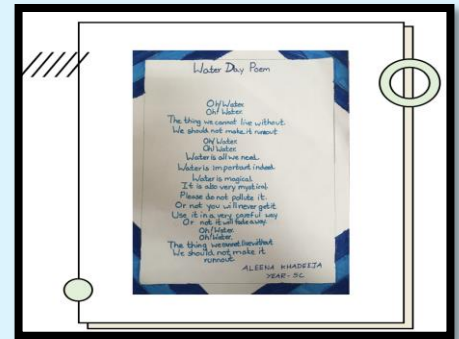 Water Day Poem
Oh! Water.
Oh! Water.
The thing we cannot live without
We should not make it runout
Oh! Water.
Oh! Water.
Water is all we need.
Water is important indeed.
Water is magical.
It is also very mystical.
Please do not pollute it.
Or not you will never get it.
Use it in a very careful way
Or not it will fade away.
Oh! Water.
Oh! Water.
The thing we cannot live without
We should not make it
runout
ALEENA KHADEEJA
YEAR-5C